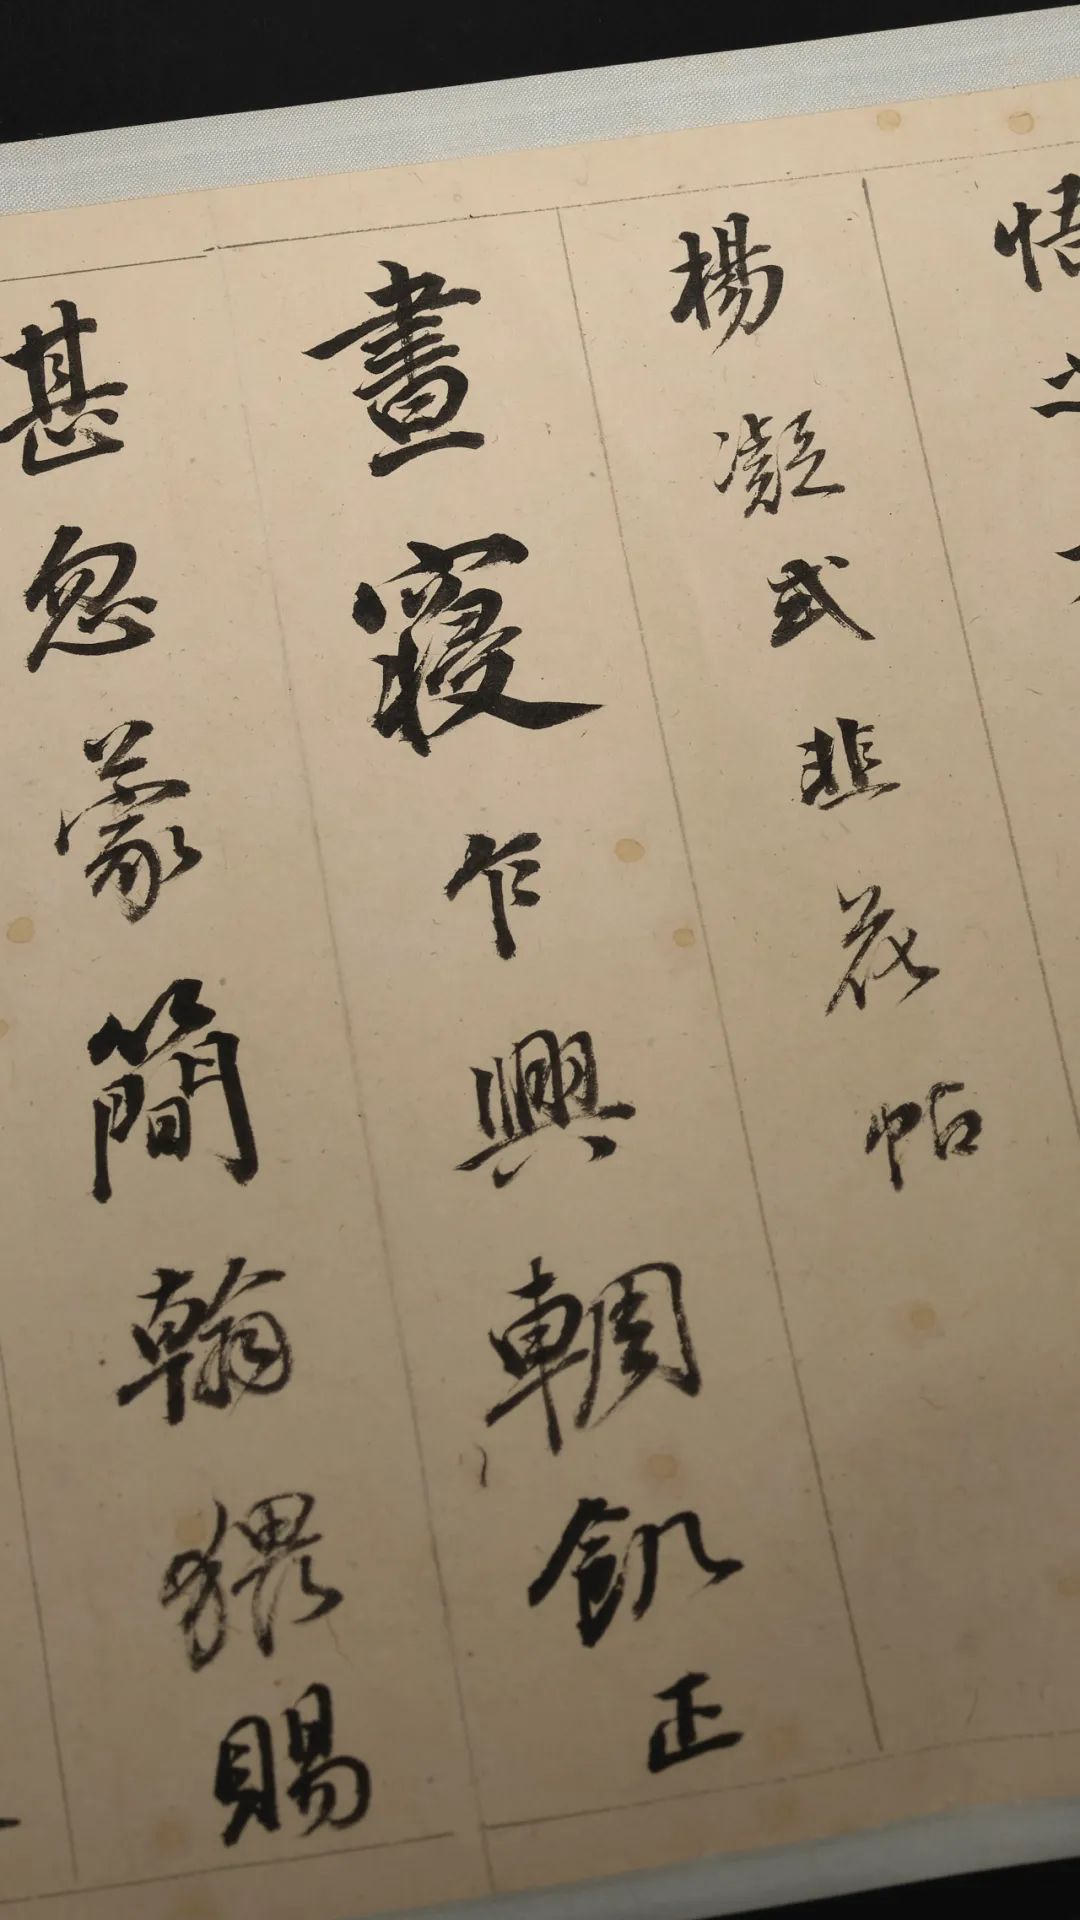 悟
楊凝式韭花帖
晝寢乍興輖飢正
甚忽蒙簡翰猥賜